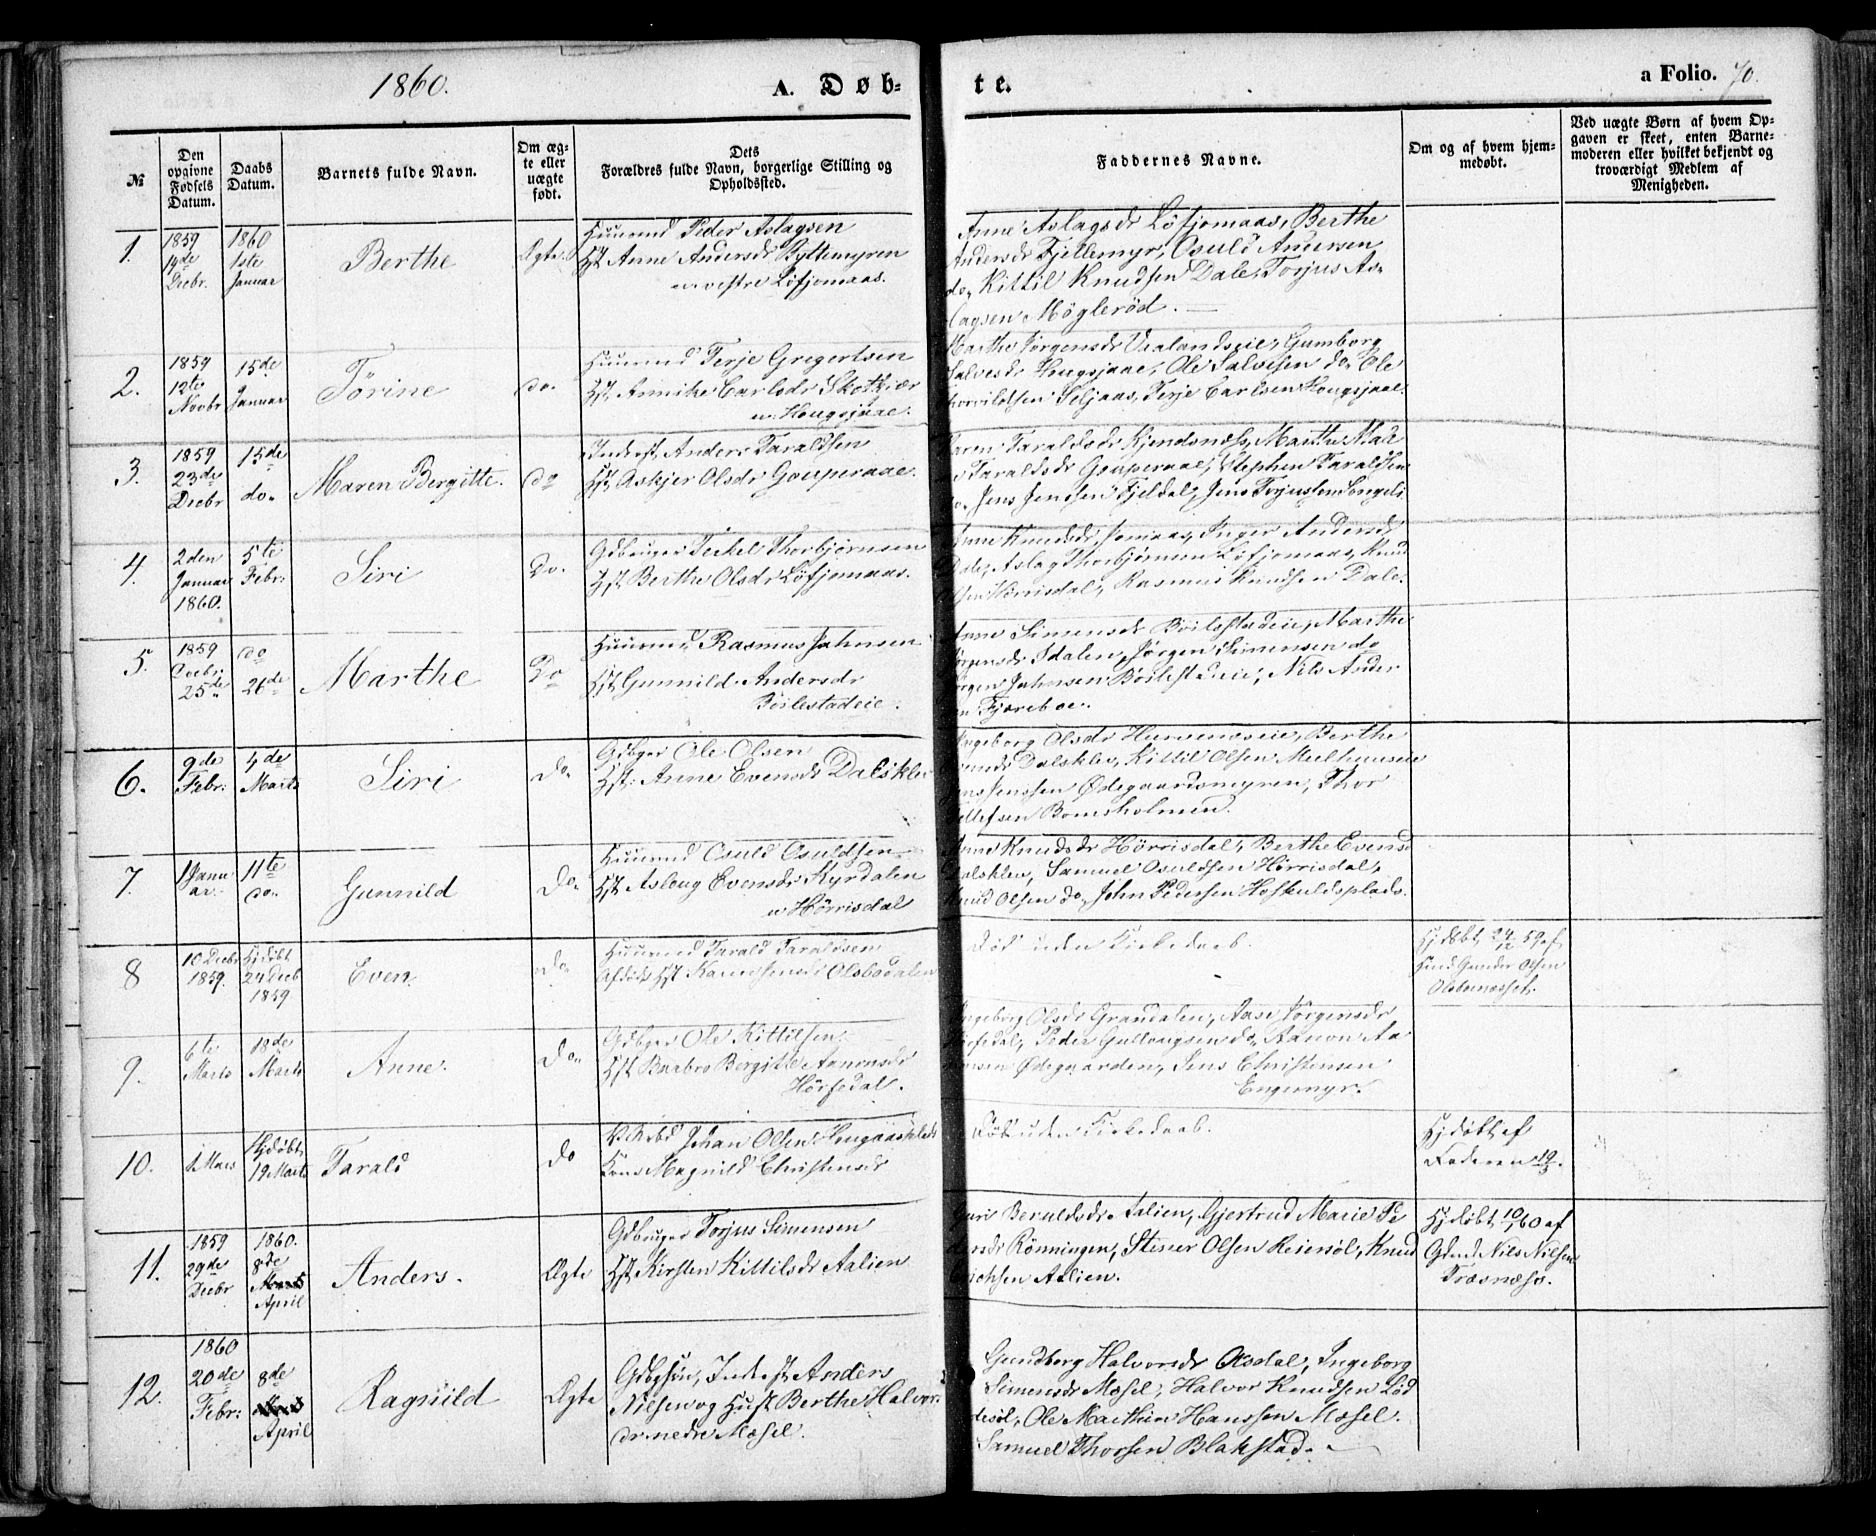 1860.
A. Døb-
te.
a Folio. 70.
№
Den
opgivne
Fødsels
Datum.
Daabs
Datum.
Barnets fulde Navn.
Om æg-
te eller
uægte
født.
Dets
Forældres fulde Navn, borgerlige Stilling og
Opholdssted.
Faddernes Navne.
Om og af hvem hjem-
medøbt.
Ved uægte Børn af hvem Op-
gaven er skeet, enten Barne-
moderen eller hvilket bekjendt og
troværdigt Medlem af
Menigheden.
1.
1859
Decbr.
1860
1ste
Januar
Berthe
Ægte
Huusmd Peder Aslagsen
Hst Anne Andersdr Byttemyren
vestre Løfjomaas.
Anne Aslagsdr Løfjomaas, Berthe
Andersdr Fjellemyr, Osuld Andersen
do, Kittil Knudsen Dale, Torjus As-
lagsen Møglerød.
2.
1859
12te
Novbr
15de
Januar
Tørine
do.
Huusmd Terje Gregertsen
Hst Annike Carlsdr Skotkjær
Hougsjaae.
Marthe Jørgensdr Vealandseie, Gumborg
Salvesdr Hougsjaae, Ole Salvesen do Ole
Seljaas, Terje Carlsen Hougsjaae.
3.
1859
23de
Decbr
15de
do.
Maren Bergitte.
do
Inderst, Anders Taraldsen
Hst Askjer Olsdr Gouperaae.
Karen Taraldsdr Kjendsnæs, Marthe Mar
Taraldsdr Gouperaae, Stephen Taraldsen
do. Jens Jensen Fjeldal, Jens Torjussen
4.
2den
Januar
1860.
5te
Febr:
Siri
Do.
Gdbruger Terkel Thorbjørnsen
Hst Berthe Olsdr Løfjomaas.
Anne Knudsdr Inger Andersdr
Dale, Aslag Thorbjørnsen Løfjomaas, Knud
Olsen Hørrisdal, Rasmus Knudsen Dale.
5.
1859
Decbr
25de
do
26de
Marthe
Do
Huusmd Rasmus Jahnsen
Hst Gunnild Andersdr
Bøilestadeie.
Anne Simensdr Bøilestadeie, Marthe
Jørgensdr Idalen, Jørgen Simensen do
Jørgen Jahnsen Bøilestadeie, Nils Ander
sen Fjæreboe.
6.
9de
Febr:
4de
Marts
Siri
Do.
Gdbger Ole Olsen
Hst: Anne Evensdr Dalsklev
Ingeborg Olsdr Berthe
Evensdr Dalsklev, Kittil Olsen
Jenssen Ødegaardsmyren, Thor
Bomsholmen.
7.
1 Janu
ar.
11te
do.
Gunnild
Do.
Huusmd Osuld Osuldsen
Hst Aslaug Evensdr Kyrdalen
Hørrisdal
Anne Knudsdr Hørrisdal, Berthe Evensd
Dalsklev, Samuel Osuldsen Hørrisdal,
Knud Olsen do, John Pedersen Høskuldsplads.
8
10 Decbr
1859.
Hjdøbt
24 Decb
1859
Even
Do.
Huusmd Tarald Taraldsen
Afdøde Hst Olsbodalen
Død uden Kirkedaab.
Hjdøbt 24/12 59 af
Gunder Olsen
9.
6te
Marts
18de
Marts
Anne.
Do.
Gdbger Ole Kittilsen.
Hst Barbro Bergitte Aanonsdr
Hørsedal.
Ingeborg Olsdr Grandalen, Aase Jørgensdr
Hørsedal, Peder Gullougsen do, Aanon Aa
nonsen Ødegaarden, Jens Christensen
Engemyr.
10.
1 Mars
Hjdøbt
19 Marts
Tarald
Do
Johan Olsen Hougaasklev
Kone Magnild Christensdr
Død uden Kirkedaab.
Hjdøbt af
Faderen 19/3.
11.
1859
29de
Decbr
1860.
8de
April
Anders.
Ægte
Gdbruger Torjus Simensen
Hst Kirsten Kittilsdr Aalien
Guri Beruldsdr Aalien, Gjertrud Marie Pe
dersdr Rönningen, Stener Olsen Heiersöl, Knud
Erichsen Aalien.
Hjdøbt 10/1 60 af
Gdmd Nils Nilsen
Træsnæss.
12.
1860
20de
Febr:
8de
April
Ragnild
Ægte
Gdbgsøn, Inderst Anders
Nilsen og Hust Berthe Halvor-
dr nedre Mæsel.
Gundborg Halvorsdr Oksdal, Ingeborg
Simensdr Mæsel, Halvor Knudsen Löd
desöl, Ole Mathin Hanssen Mæsel.
Samuel Thorsen Blakstad.